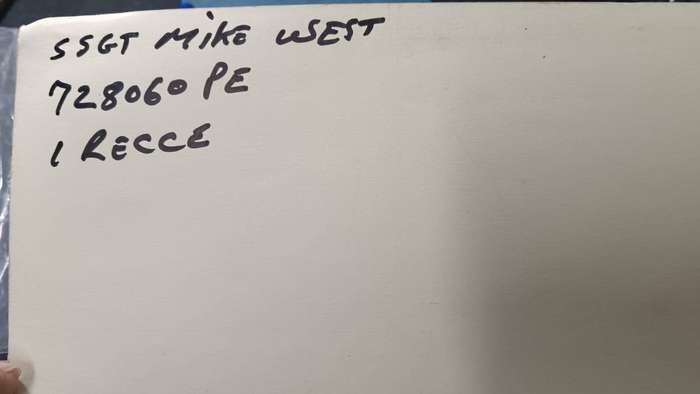 SSGT MIKE WEST
728060 PE
1 RECCE